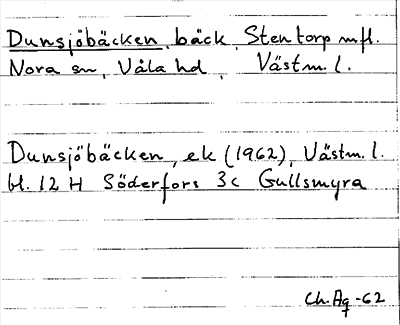 Dunsjöbäcken, bäck, Stentorp m fl.
Nora sn, Våla hd, Västm. l.
Dunsjöbäcken, ek (1962), Västm. l.
bl. 12 H Söderfors 3c Gullsmyra
Ch. Ag -62